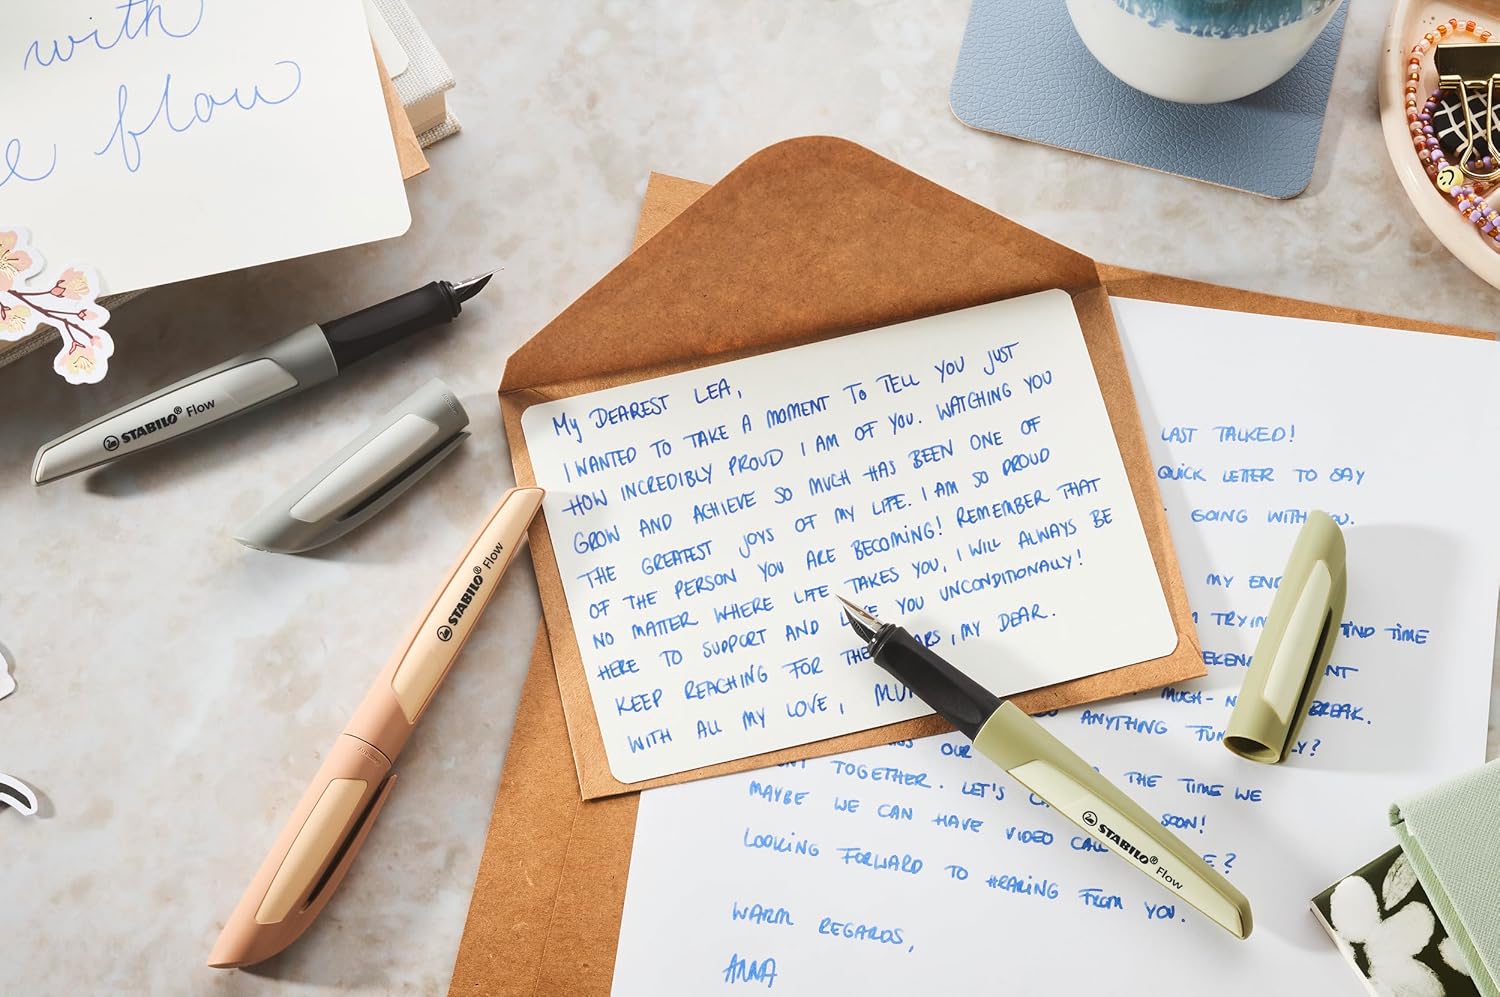 with
e flow
STABILO® Flow
STABILO® Flow
MY DEAREST LEA,
I WANTED TO TAKE A MOMENT TO TELL YOU JUST
HOW INCREDIBLY PROUD I AM OF YOU. WATCHING YOU
GROW AND ACHIEVE SO MUCH HAS BEEN ONE OF
THE GREATEST JOYS OF MY LIFE. I AM SO PROUD
OF THE PERSON YOU ARE BECOMING! REMEMBER THAT
NO MATTER WHERE LIFE TAKES YOU, I WILL ALWAYS BE
HERE TO SUPPORT AND YOU UNCONDITIONALLY!
KEEP REACHING FOR THE , MY DEAR.
WITH ALL MY LOVE,
LAST TALKED!
QUICK LETTER TO SAY
GOING WITH YOU.
MY
TIME
MUCH- BREAK.
ANYTHING
OUR THE TIME WE
TOGETHER. LET'S SOON!
MAYBE WE CAN HAVE VIDEO CALL ?
LOOKING FORWARD TO HEARING FROM YOU.
WARM REGARDS,
ANNA
STABILO® Flow